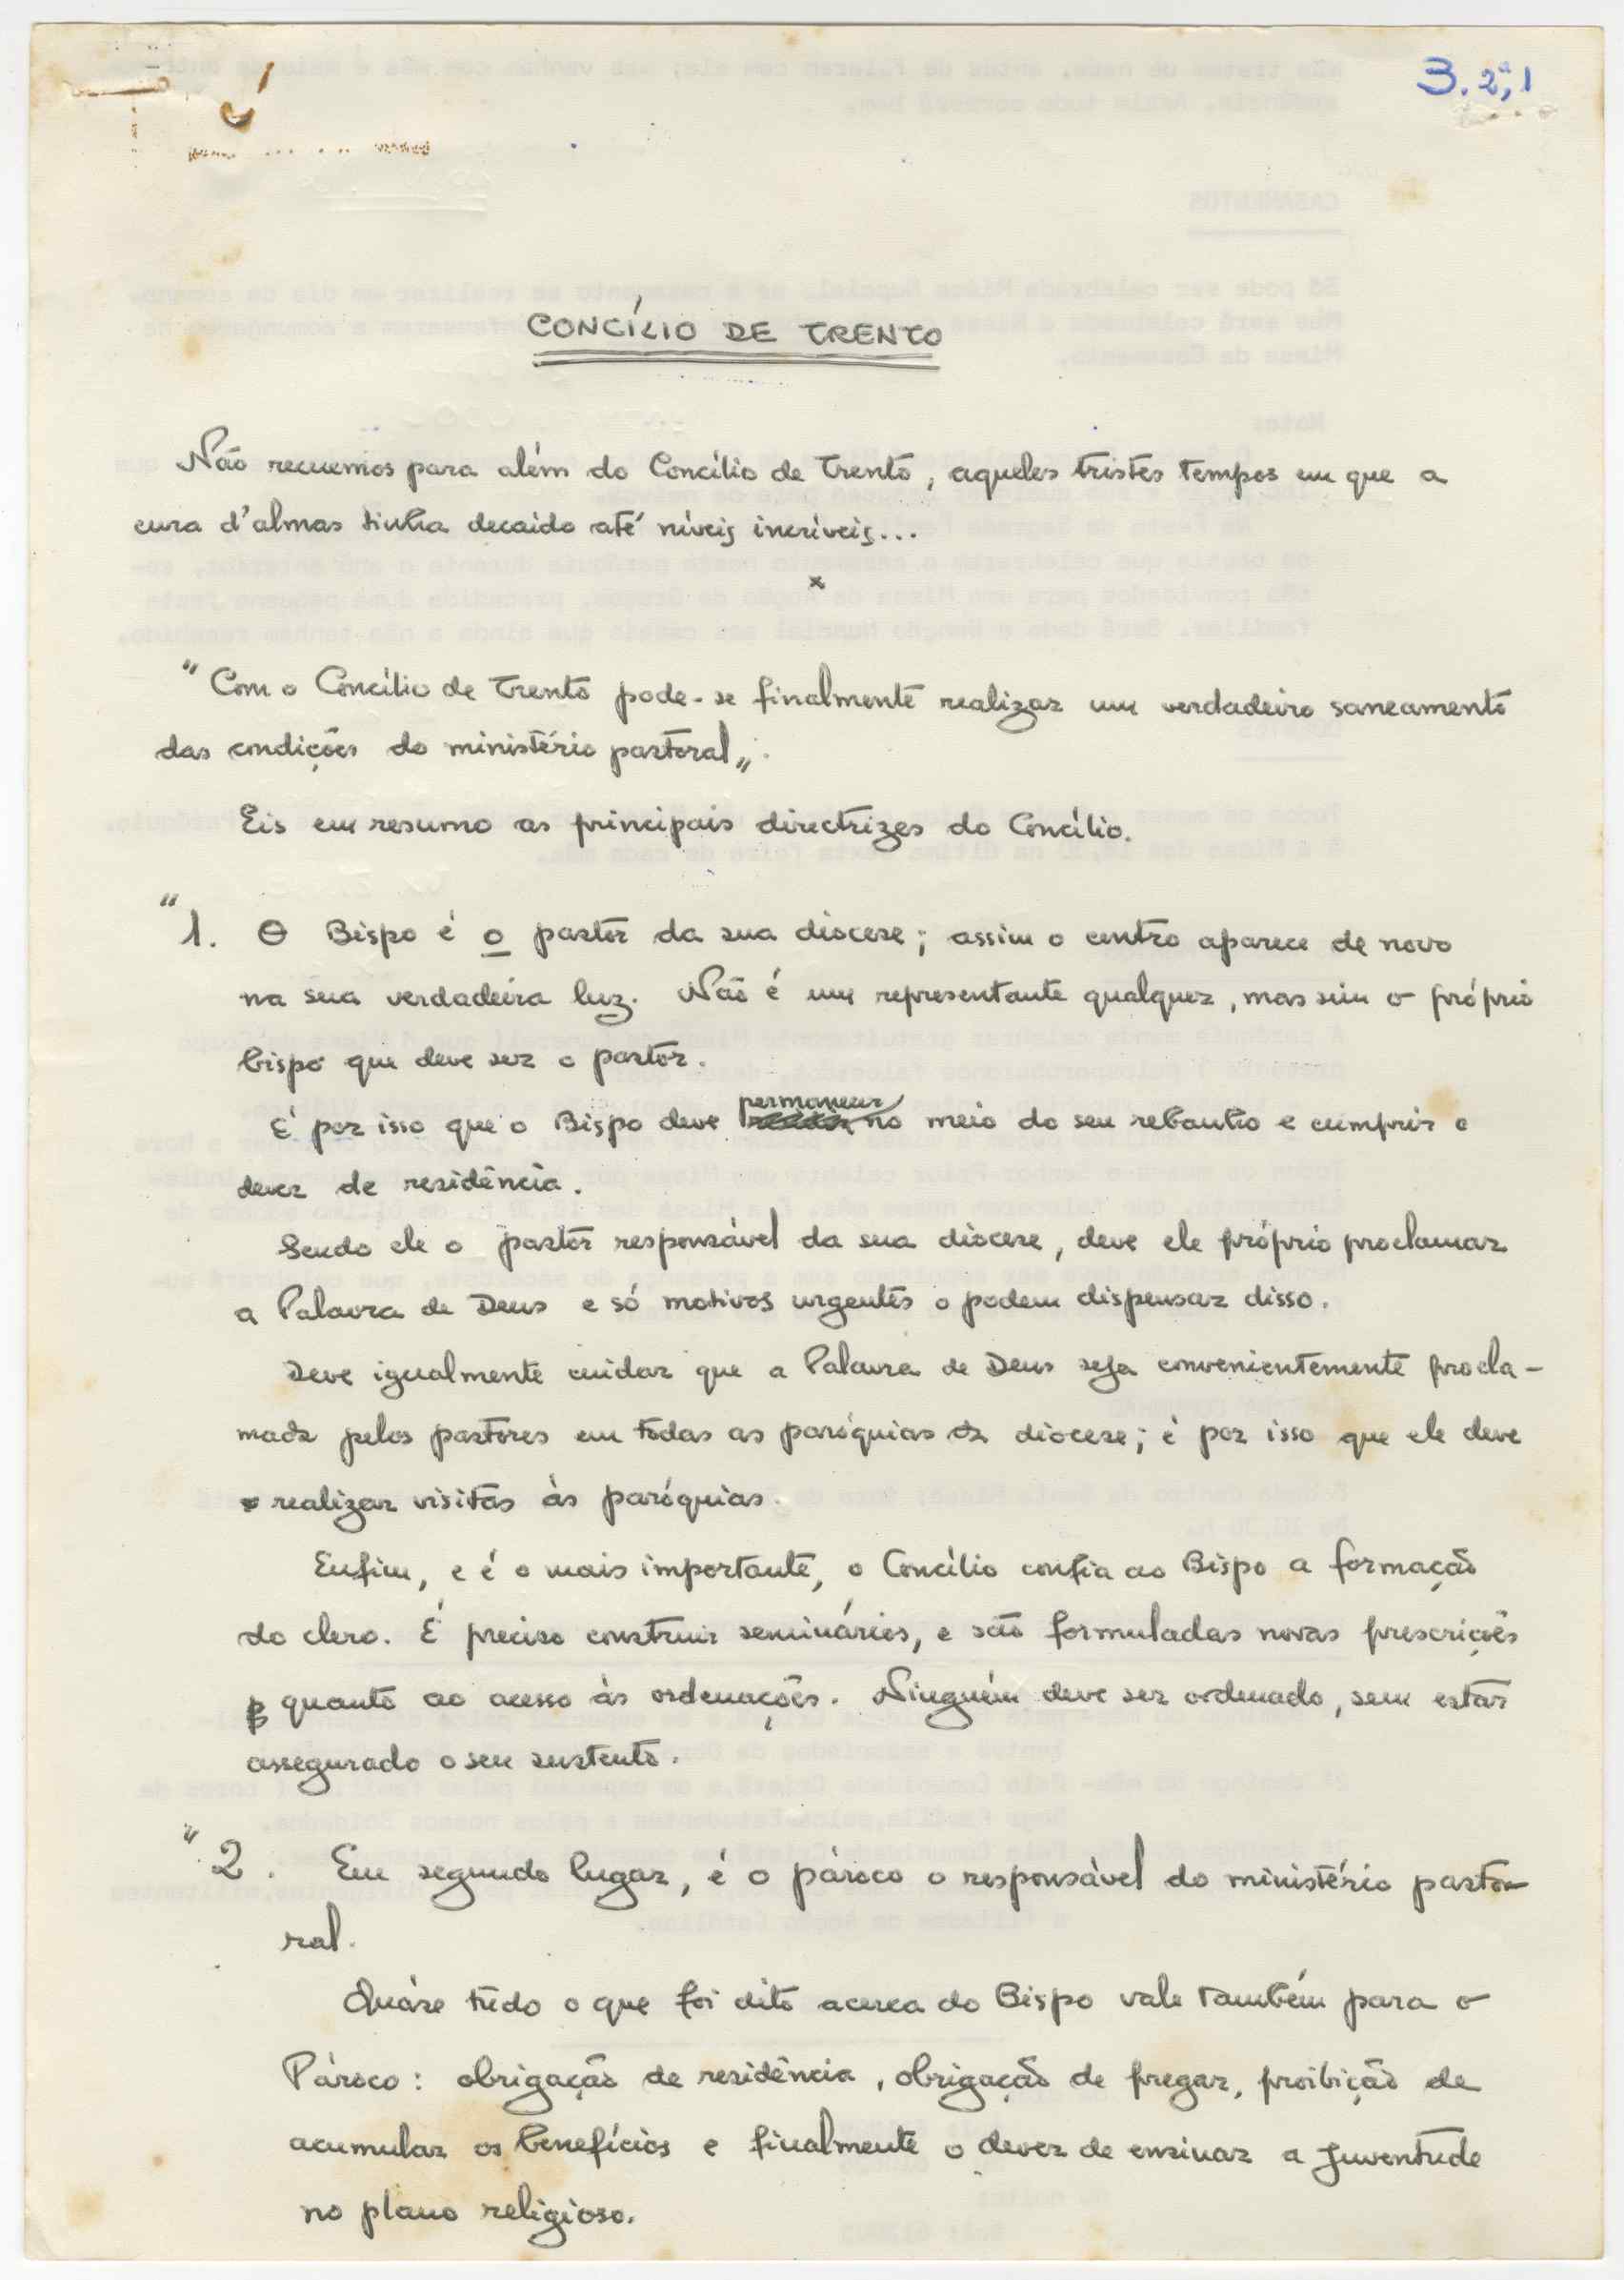 3. 2ª, 1
CONCÍLIO DE TRENTO
Não recuemos para além do Concílio de Trento, aqueles tristes tempos em que a
cura d'almas tinha decaído até níveis incríveis...
x
"Com o Concílio de Trento pode-se finalmente realizar um verdadeiro saneamento
das condições do ministério pastoral".
Eis em resumo as principais directrizes do Concílio.
"1. O Bispo é o pastor da sua diocese; assim o centro aparece de novo
na sua verdadeira luz. Não é um representante qualquer, mas sim o próprio
bispo que deve ser o pastor.
É por isso que o Bispo deve permanecer no meio do seu rebanho e cumprir o
dever de residência.
Sendo ele o pastor responsável da sua diocese, deve ele próprio proclamar
a Palavra de Deus e só motivos urgentes o podem dispensar disso.
Deve igualmente cuidar que a Palavra de Deus seja convenientemente procla-
mada pelos pastores em todas as paróquias da diocese; é por isso que ele deve
realizar visitas às paróquias.
Enfim, e é o mais importante, o Concílio confia ao Bispo a formação
do clero. É preciso construir seminários, e são formuladas novas prescrições
quanto ao acesso às ordenações. Ninguém deve ser ordenado, sem estar
assegurado o seu sustento.
"2. Em segundo lugar, é o pároco o responsável do ministério pasto-
ral.
Quáse tudo o que foi dito acerca do Bispo vale também para o
Pároco: obrigação de residência, obrigação de pregar, proibição de
acumular os benefícios e finalmente o dever de ensinar a juventude
no plano religioso.